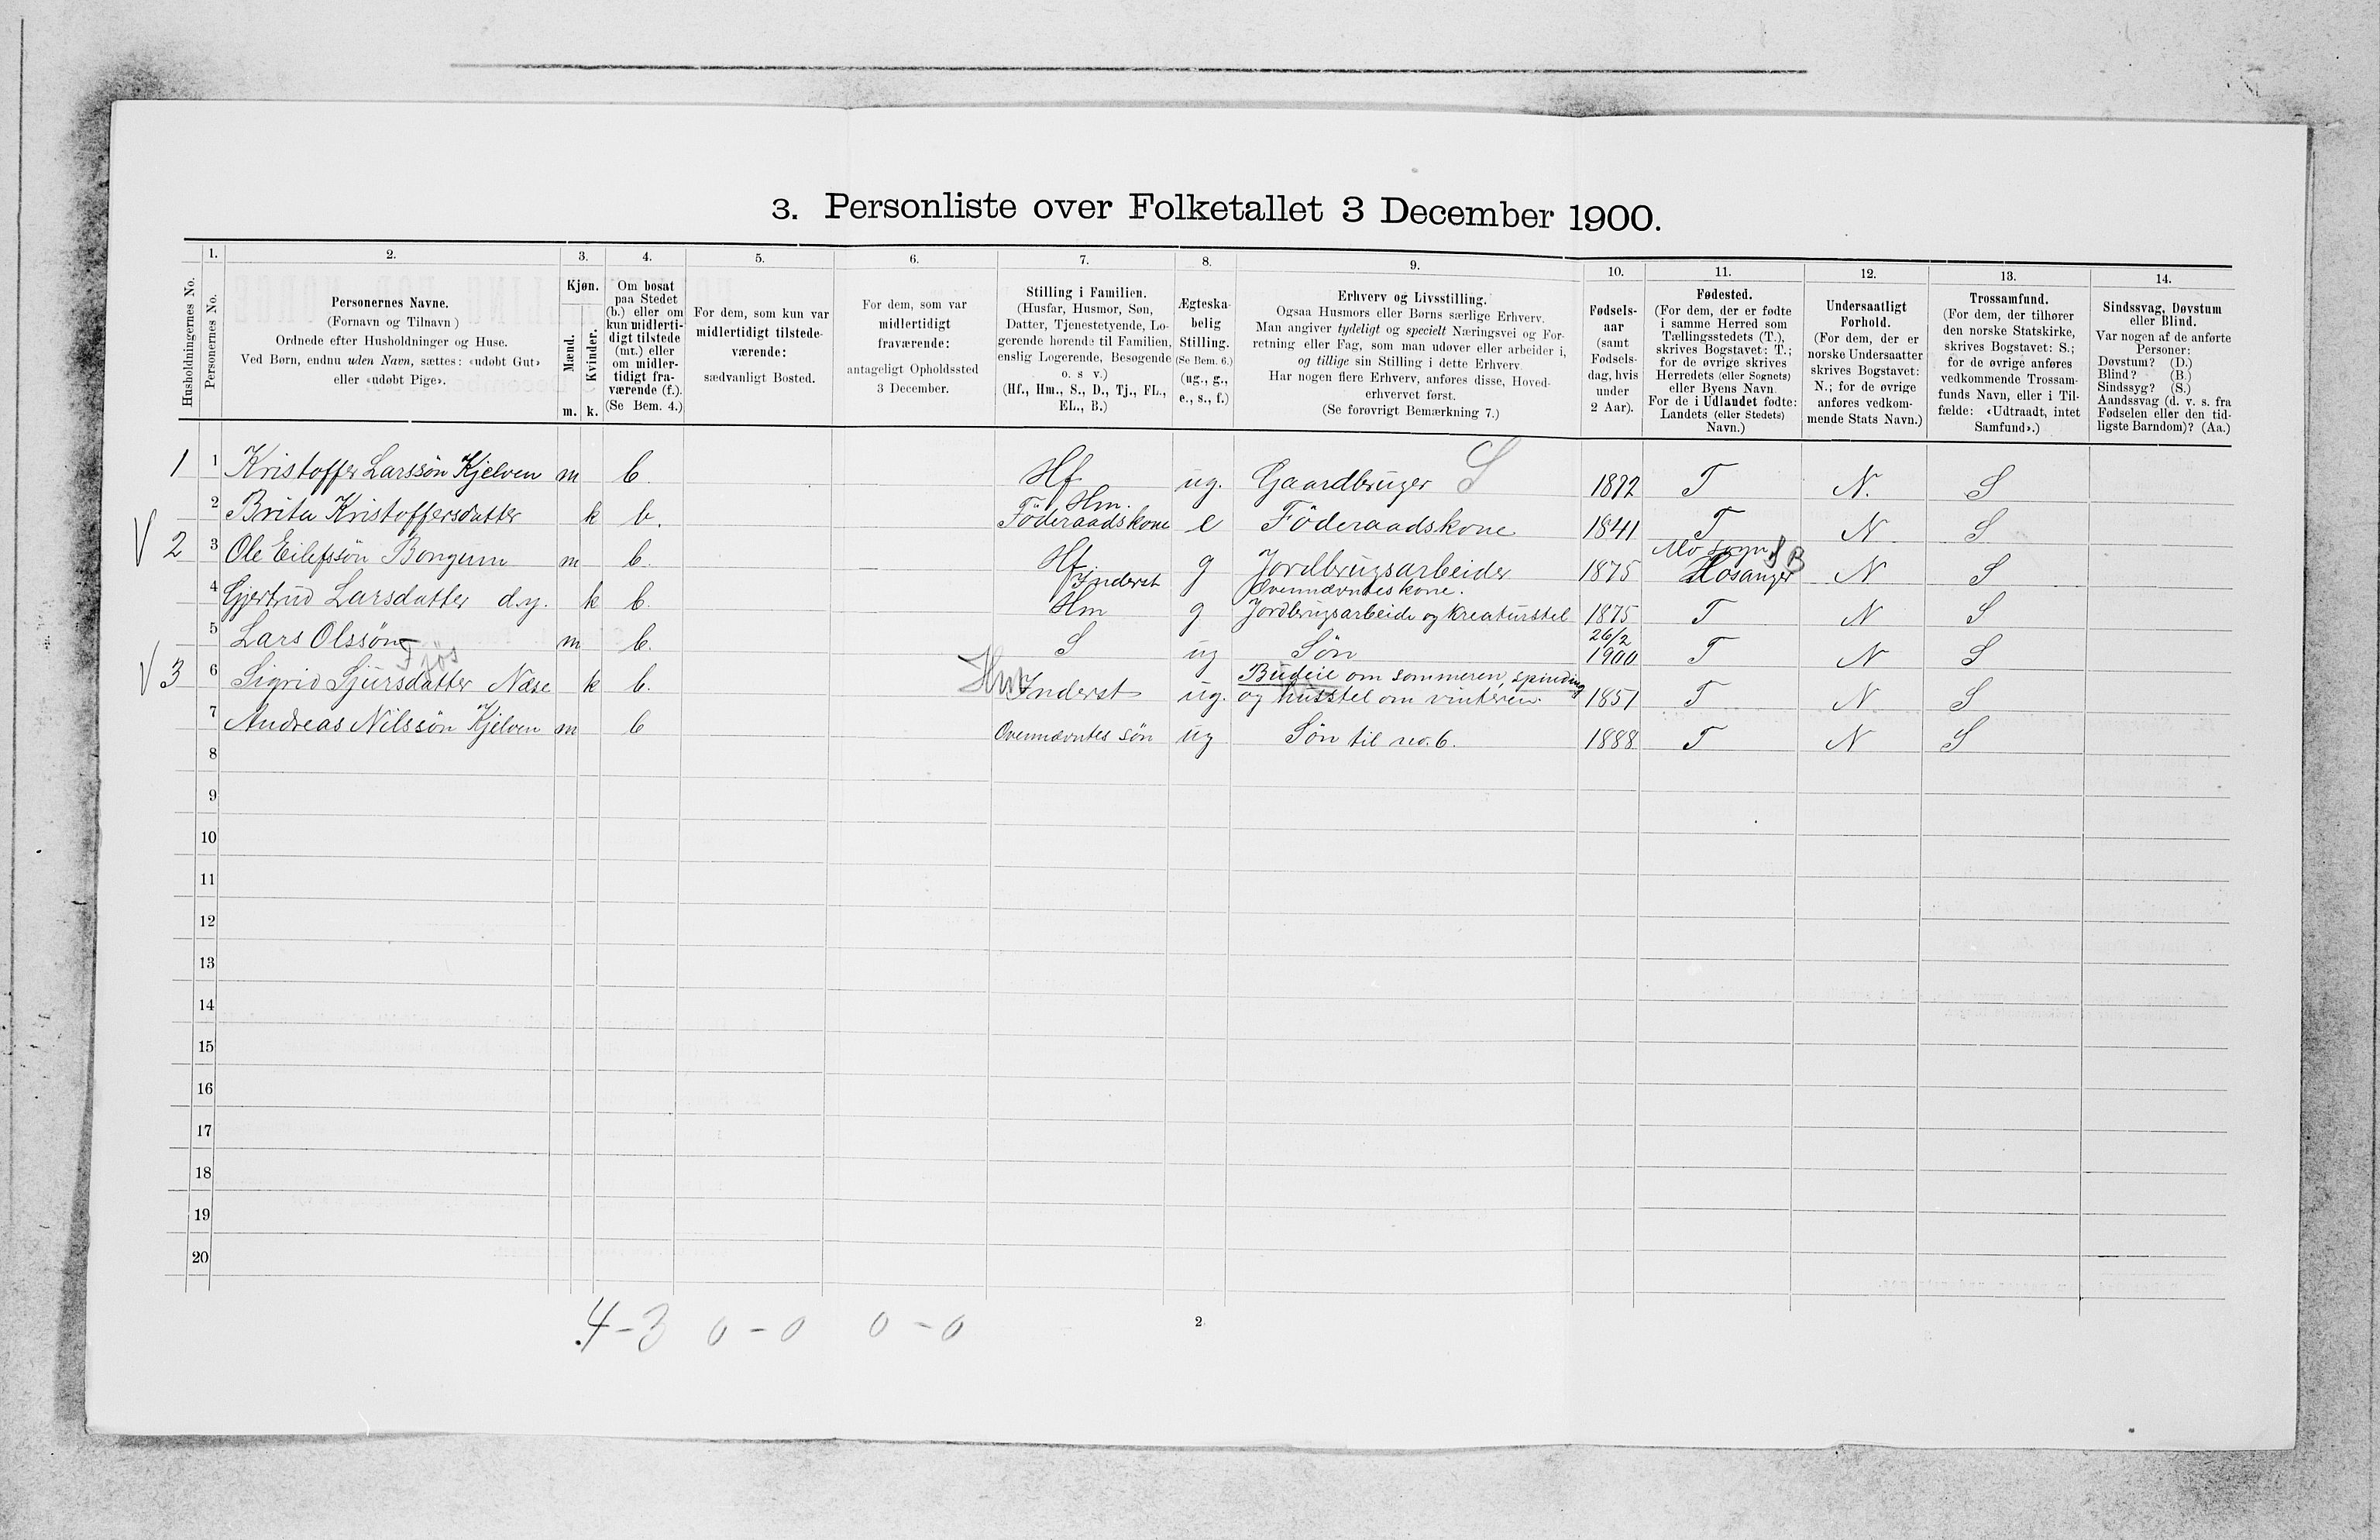 3. Personliste over Folketallet 3 December 1900.
Husholdningernes No.
1.
Personernes No.
2.
Personernes Navne.
(Fornavn og Tilnavn)
Ordnede efter Husholdninger og Huse.
Ved Børn, endnu uden Navn, sættes: «udøbt Gut»
eller «udøbt Pige».
3.
Kjøn.
Mænd.
Kvinder.
m. k.
4.
Om bosat
paa Stedet
(b.) eller om
kun midlerti-
digt tilstede
(mt.) eller
om midler-
tidigt fra-
værende (f.).
(Se Bem. 4.)
5.
For dem, som kun var
midlertidigt tilstede-
værende:
sædvanligt Bosted.
6.
For dem, som var
midlertidigt
fraværende:
antageligt Opholdssted
3 December.
7.
Stilling i Familien.
(Husfar, Husmor, Søn,
Datter, Tjenestetyende, Lo-
gerende hørende til Familien,
enslig Logerende, Besøgende
o. s v.)
(Hf., Hm., S., D., Tj., FL.,
EL., B.)
8.
Ægteska-
belig
Stilling.
(Se Bem. 6.)
(ug., g.,
e., s., f.)
9.
Erhverv og Livsstilling.
Ogsaa Husmors eller Børns særlige Erhverv.
Man angiver tydeligt og specielt Næringsvei og For-
retning eller Fag, som man udøver eller arbeider i,
og tillige sin Stilling i dette Erhverv.
Har nogen flere Erhverv, anføres disse, Hoved-
erhvervet først.
(Se forøvrigt Bemærkning 7.)
10.
Fødsels-
aar
(samt
Fødsels-
dag, hvis
under
2 Aar).
11.
Fødested.
(For dem, der er fødte
i samme Herred som
Tællingsstedets (T.),
skrives Bogstavet: T.;
for de øvrige skrives
Herredets (eller Sognets)
eller Byens Navn
For de i Udlandet fødte:
Landets (eller Stedets)
Navn.)
12.
Undersaatligt
Forhold.
(For dem, der er
norske Undersaatter
skrives Bogstavet:
N.; for de øvrige
anføres vedkom-
mende Stats Navn.)
13.
Trossamfund.
(For dem, der tilhører
den norske Statskirke,
skrives Bogstavet: S.;
for de øvrige anføres
vedkommende Trossam-
funds Navn, eller i Til-
fælde: «Udtraadt, intet
Samfund».)
14.
Sindssvag, Døvstum
eller Blind.
Var nogen af de anførte
Personer:
Døvstum? (D.)
Blind? (B.)
Sindssyg? (S.)
Aandssvag (d. v. s. fra
Fødselen eller den tid-
ligste Barndom)? (Aa.)
1 1 Kristoffer Larssön Kjelven m b. Hf ug. Gaardbruger S 1872 T N. S
2 Brita Kristoffersdatter k b. Hm. Föderaadskone e Föderaadskone 1841 T N S
V 2 3 Ole Eilefssön Bongum m b. Hf. Inderst g Jordbrugsarbeider 1875 Mo sogn Hosanger S B N S
4 Gjertrud Larsdatter d.y. k b. Hm g Ovennævntes kone. Jordbrugsarbeide og kreaturstel 1875 T N S
5 Lars Olssön m b. S ug Sön 26/2 1900 T N S
Fjös
V 3 6 Sigrid Sjursdatter Næse k b. Hm Inderst ug. Budeie om sommeren, spinding og husstel om vinteren. 1851 T N S
7 Andreas Nilssön Kjelven m b Ovennævntes sön ug Sön til no. 6. 1888 T N S
8
9
10
11
12
13
14
15
16
17
18
19
20
4-3 0-0 0-0
2